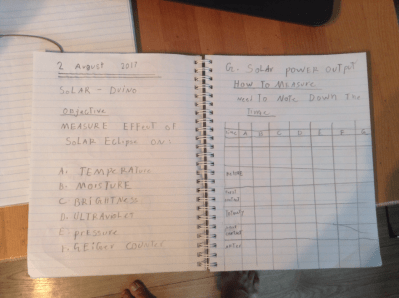 2 August 2017
SOLAR - DUINO
Objective
MEASURE EFFECT OF
SOLAR Eclipse ON:
A: TEMPERATURE
B: MOISTURE
C. BRIGHTNESS
D. ULTRAVIOLET
E: pressure
F. GEIGER COUNTER
G: SOLAR POWER OUTPUT
HOW TO MEASURE
need to Note Down The
time
time A B C D E F G
before
first
contact
totality